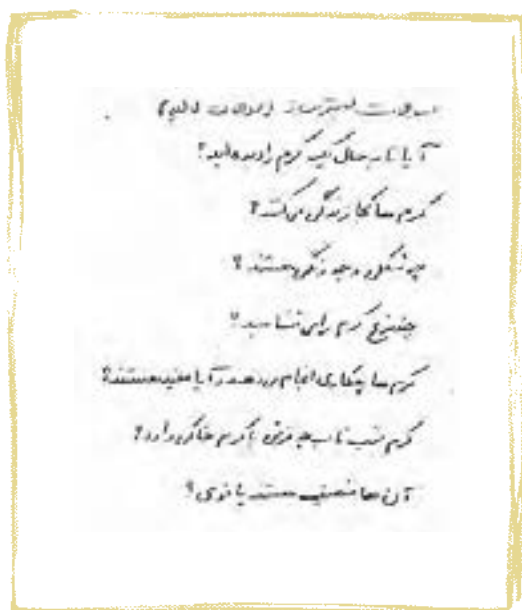 آیا تا به حال یک کرم را دیده اید؟
کرم ها کجا زندگی می کنند؟
چه شکلی و چه رنگی هستند؟
چند نوع کرم را می شناسید؟
کرم ها چکاری انجام می دهند آیا مفید هستند؟
کرم شب تاب چه فرقی با کرم خاکی دارد؟
آن ها ضعیف هستند یا قوی؟